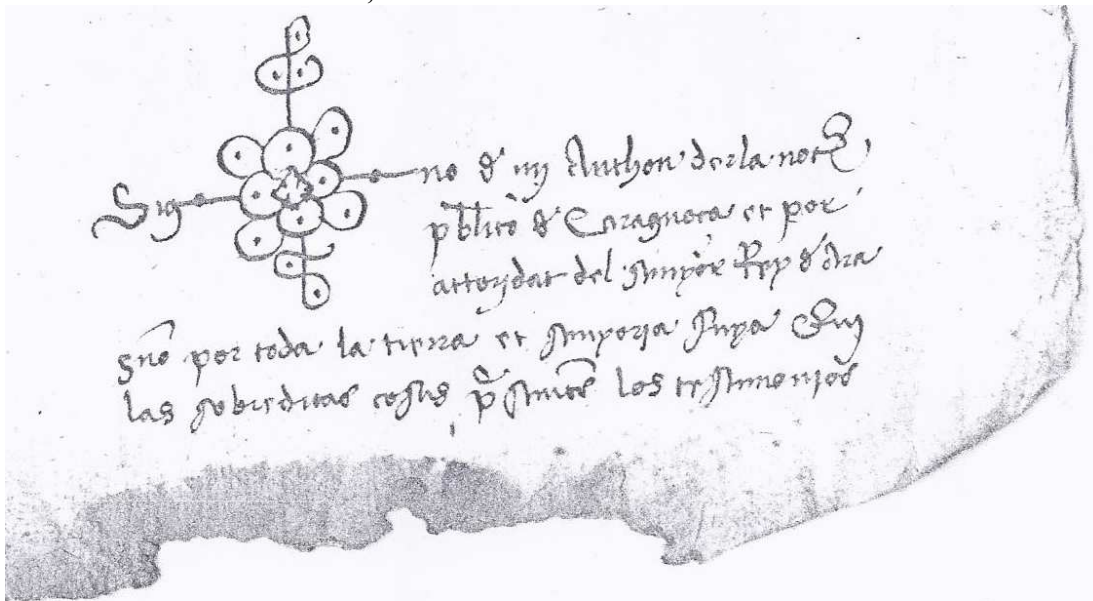 Sig no de mi Anthon derla not
publico de Caragoça et por
actoridat del senyor Rey d ara
por toda la tierra et senyoria suya Qui
las sobreditas cosas present los testimonios